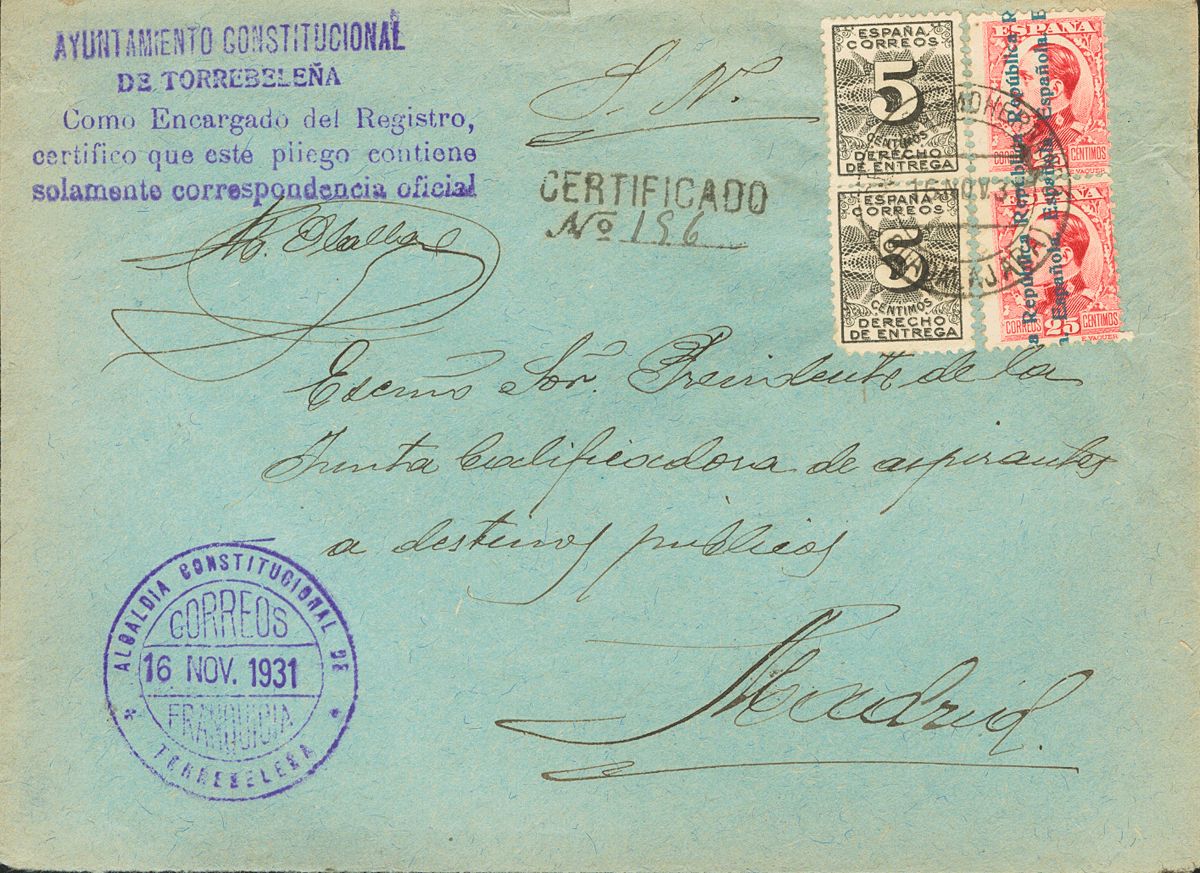 AYUNTAMIENTO CONSTITUCIONAL
DE TORREBELEÑA
Como Encargado del Registro,
certifico que este pliego contiene
solamente correspondencia oficial
S. N.
CERTIFICADO
Nº 196
ESPAÑA
CORREOS
5
CENTIMOS
DERECHO
DE ENTREGA
ESPAÑA
CORREOS
5
CENTIMOS
DERECHO
DE ENTREGA
ESPAÑA
República
Española.
CORREOS
CENTIMOS
E. VAQUER
República
Española.
CORREOS 25 CENTIMOS
E. VAQUER
16 NOV 3
Excmo Sor. Presidente de la
Junta Calificadora de aspirantes
a destinos públicos
Madrid.
ALCALDIA CONSTITUCIONAL DE
CORREOS
16 NOV. 1931
FRANQUICIA
* TORREBELEÑA *